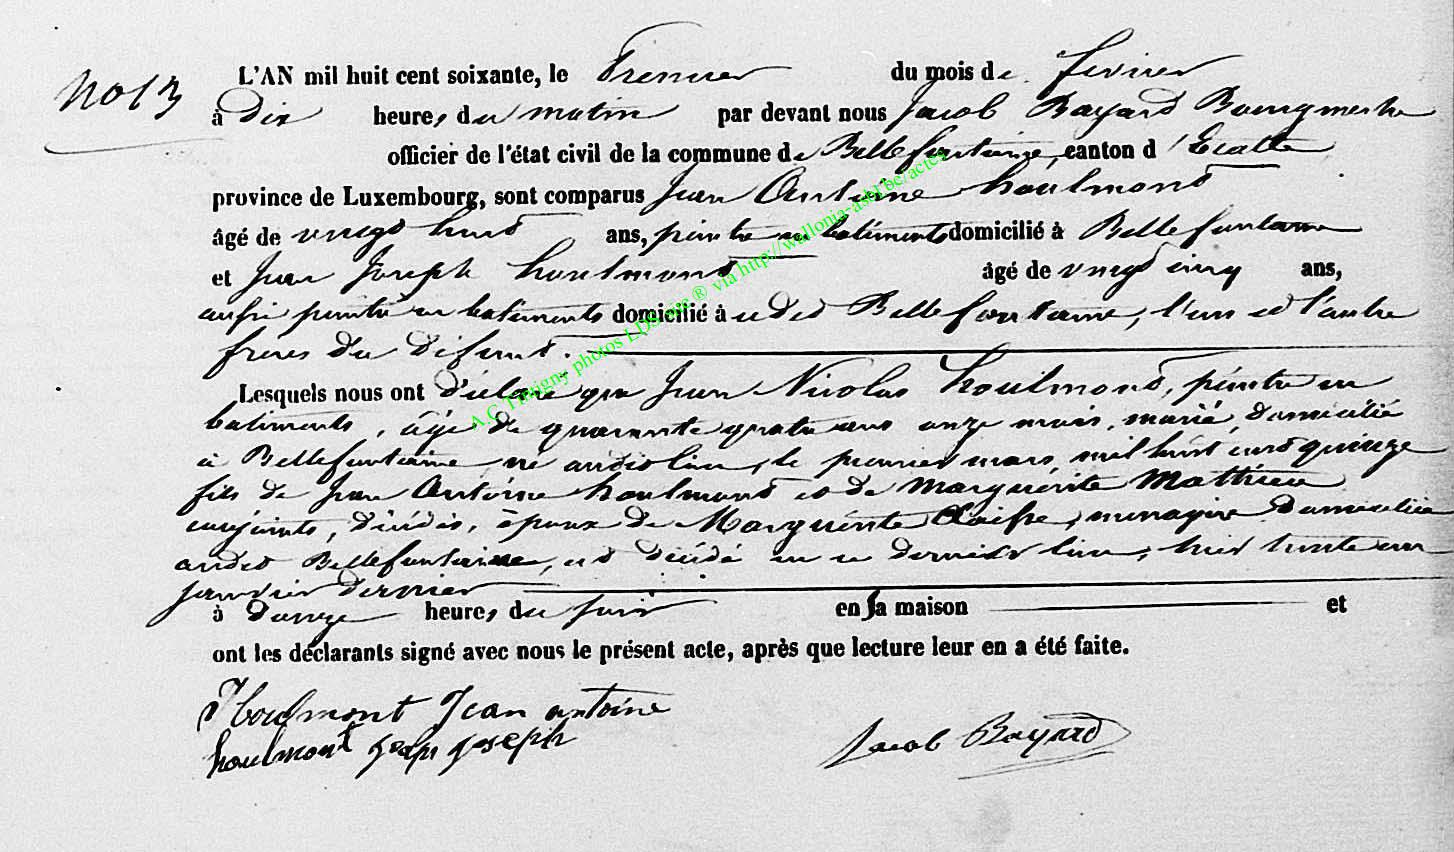 No 13
L'AN mil huit cent soixante, le Premier du mois de fevrier
à dix heures du matin par devant nous Jacob Bayard Bourgmestre
officier de l'état civil de la commune de Bellefontaine, canton d'Etalle
province de Luxembourg, sont comparus Jean Antoine houlmont
âgé de vingt huit ans, peintre en batiments domicilié à Bellefontaine
et Jean Joseph houlmont âgé de vingt cinq ans,
aussi peintre en batiments domicilié à udit Bellefontaine, l'un et l'autre
freres du défunt.
Lesquels nous ont déclaré que Jean Nicolas houlmont, peintre en
batiments, âgé de quarante quatre ans onze mois, marié, domicilié
à Bellefontaine né audit lieu, le premier mars mil huit cent quinze
fils de Jean Antoine houlmont et de Marguerite Mathieu
conjoints, décédés, époux de Marguerite, menagère domiciliée
audit Bellefontaine, est décédé en ce dernier lieu, hier trente un
janvier dernier
à d'onze heures du soir en sa maison et
ont les déclarants signé avec nous le présent acte, après que lecture leur en a été faite.
Houlmont Jean antoine
houlmont jean joseph
Jacob Bayard
A.C. Tintigny photos LDS site ® via http://wallonia-asbl.be/actes